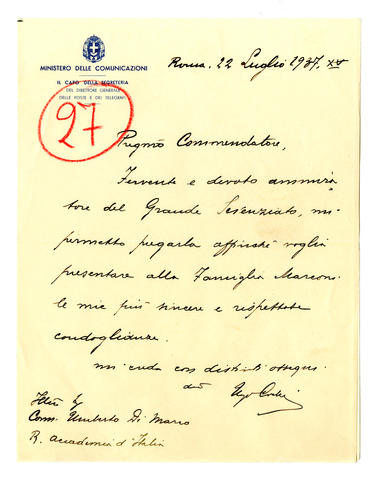 MINISTERO DELLE COMUNICAZIONI
IL CAPO DELLA SEGRETERIA
DEL DIRETTORE GENERALE
DELLE POSTE E DEI TELEGRAFI
Roma, 22 Luglio 1937. XV
27
Pregmo Commendatore,
Fervente e devoto ammira
tore del Grande Scienziato, mi
permetto pregarla affinchè voglia
presentare alla Famiglia Marconi
le mie più sincere e rispettose
condoglianze.
Mi creda con distinti ossequi.
Ugo
Comm. Umberto Di Marco
R. Accademia d'Italia